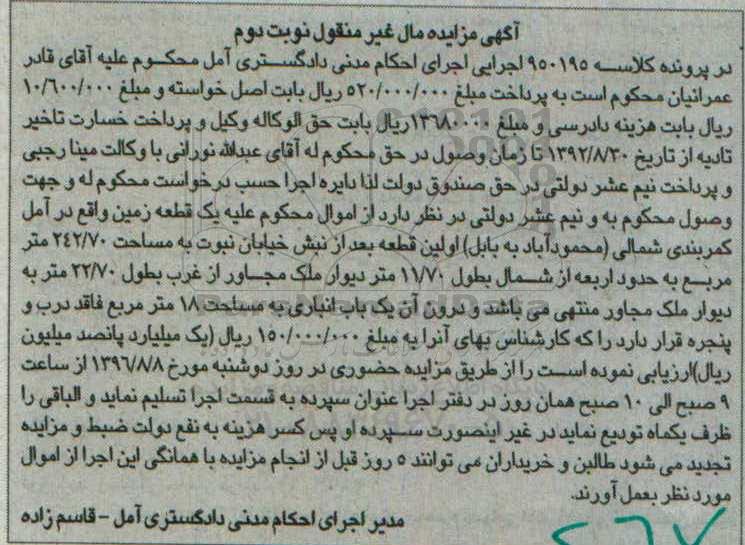 آگهی مزایده مال غیر منقول نوبت دوم
در پرونده کلاسه ۹۵۰۱۹۵ اجرایی اجرای احکام مدنی دادگستری آمل محکوم علیه آقای قادر
عمرانیان محکوم است به پرداخت مبلغ ۵۲۰/۰۰۰/۰۰۰ ریال بابت اصل خواسته و مبلغ ۱۰/۶۰۰/۰۰۰
ریال بابت هزینه دادرسی و مبلغ ریال بابت حق الوکاله وکیل و پرداخت خسارت تاخیر
تادیه از تاریخ ۱۳۹۲/۸/۳۰ تا زمان وصول در حق محکوم له آقای عبدالله نورانی با وکالت مینا رجبی
و پرداخت نیم عشر دولتی در حق صندوق دولت لذا دایره اجرا حسب درخواست محکوم له و جهت
وصول محکوم به و نیم عشر دولتی در نظر دارد از اموال محکوم علیه یک قطعه زمین واقع در آمل
کمربندی شمالی (محمودآباد به بابل) اولین قطعه بعد از نبش خیابان نبوت به مساحت ۲۴۲/۷۰ متر
مربع به حدود اربعه از شمال بطول ۱۱/۷۰ متر دیوار ملک مجاور از غرب بطول ۲۲/۷۰ متر به
دیوار ملک مجاور منتهی می باشد و درون آن یک باب انباری به مساحت ۱۸ متر مربع فاقد درب و
پنجره قرار دارد را که کارشناس بهای آنرا به مبلغ ۱۵۰/۰۰۰/۰۰۰ ریال (یک میلیارد پانصد میلیون
ریال)ارزیابی نموده است را از طریق مزایده حضوری در روز دوشنبه مورخ ۱۳۹۶/۸/۸ از ساعت
۹ صبح الی ۱۰ صبح همان روز در دفتر اجرا عنوان سپرده به قسمت اجرا تسلیم نماید و الباقی را
ظرف یکماه تودیع نماید در غیر اینصورت سپرده او پس کسر هزینه به نفع دولت ضبط و مزایده
تجدید می شود طالبن و خریداران می توانند ۵ روز قبل از انجام مزایده با همانگی این اجرا از اموال
مورد نظر بعمل آورند.
مدیر اجرای احکام مدنی دادگستری آمل - قاسم زاده
ParsNamadData